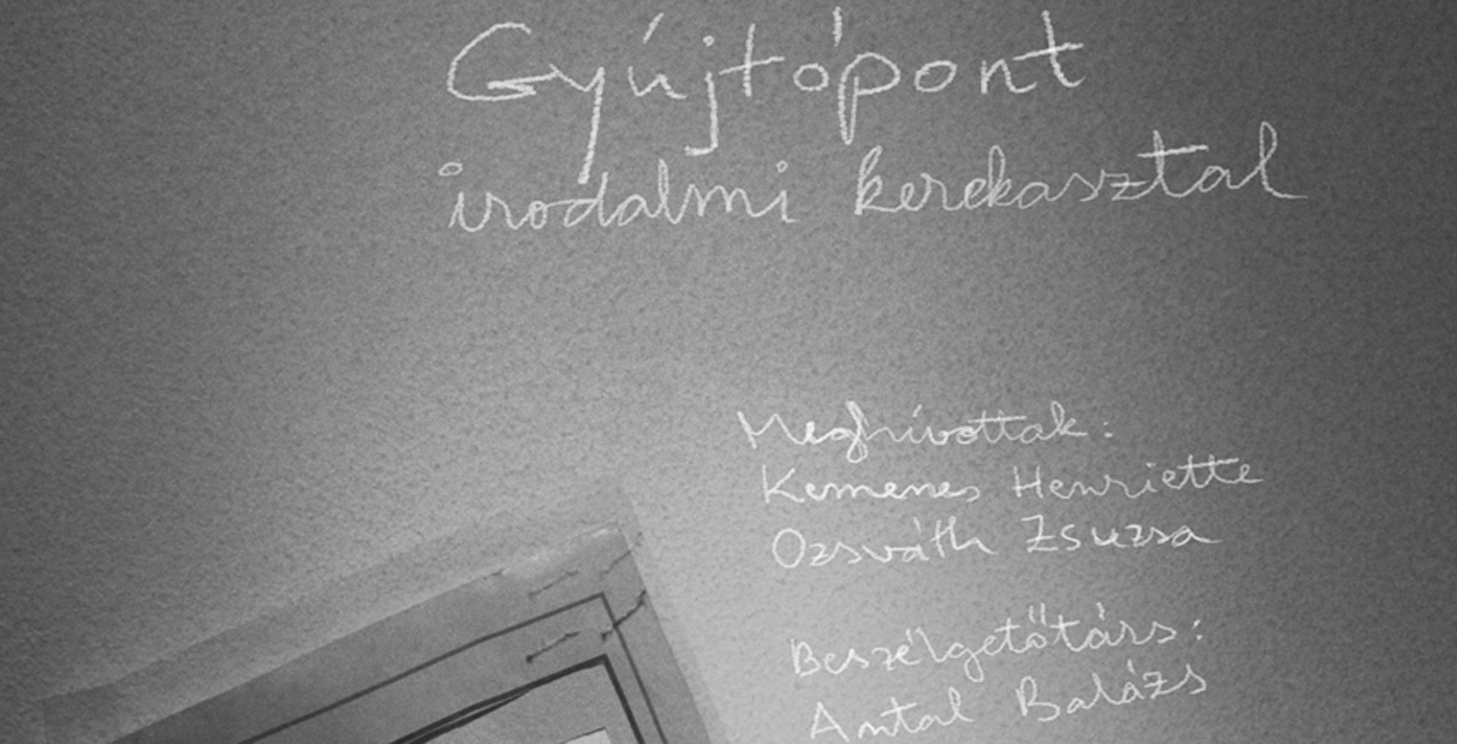 Gyújtópont
irodalmi kerekasztal
Meghívottak:
Kemenes Henriette
Ozsváth Zsuzsa
Beszélgetőtárs:
Antal Balázs